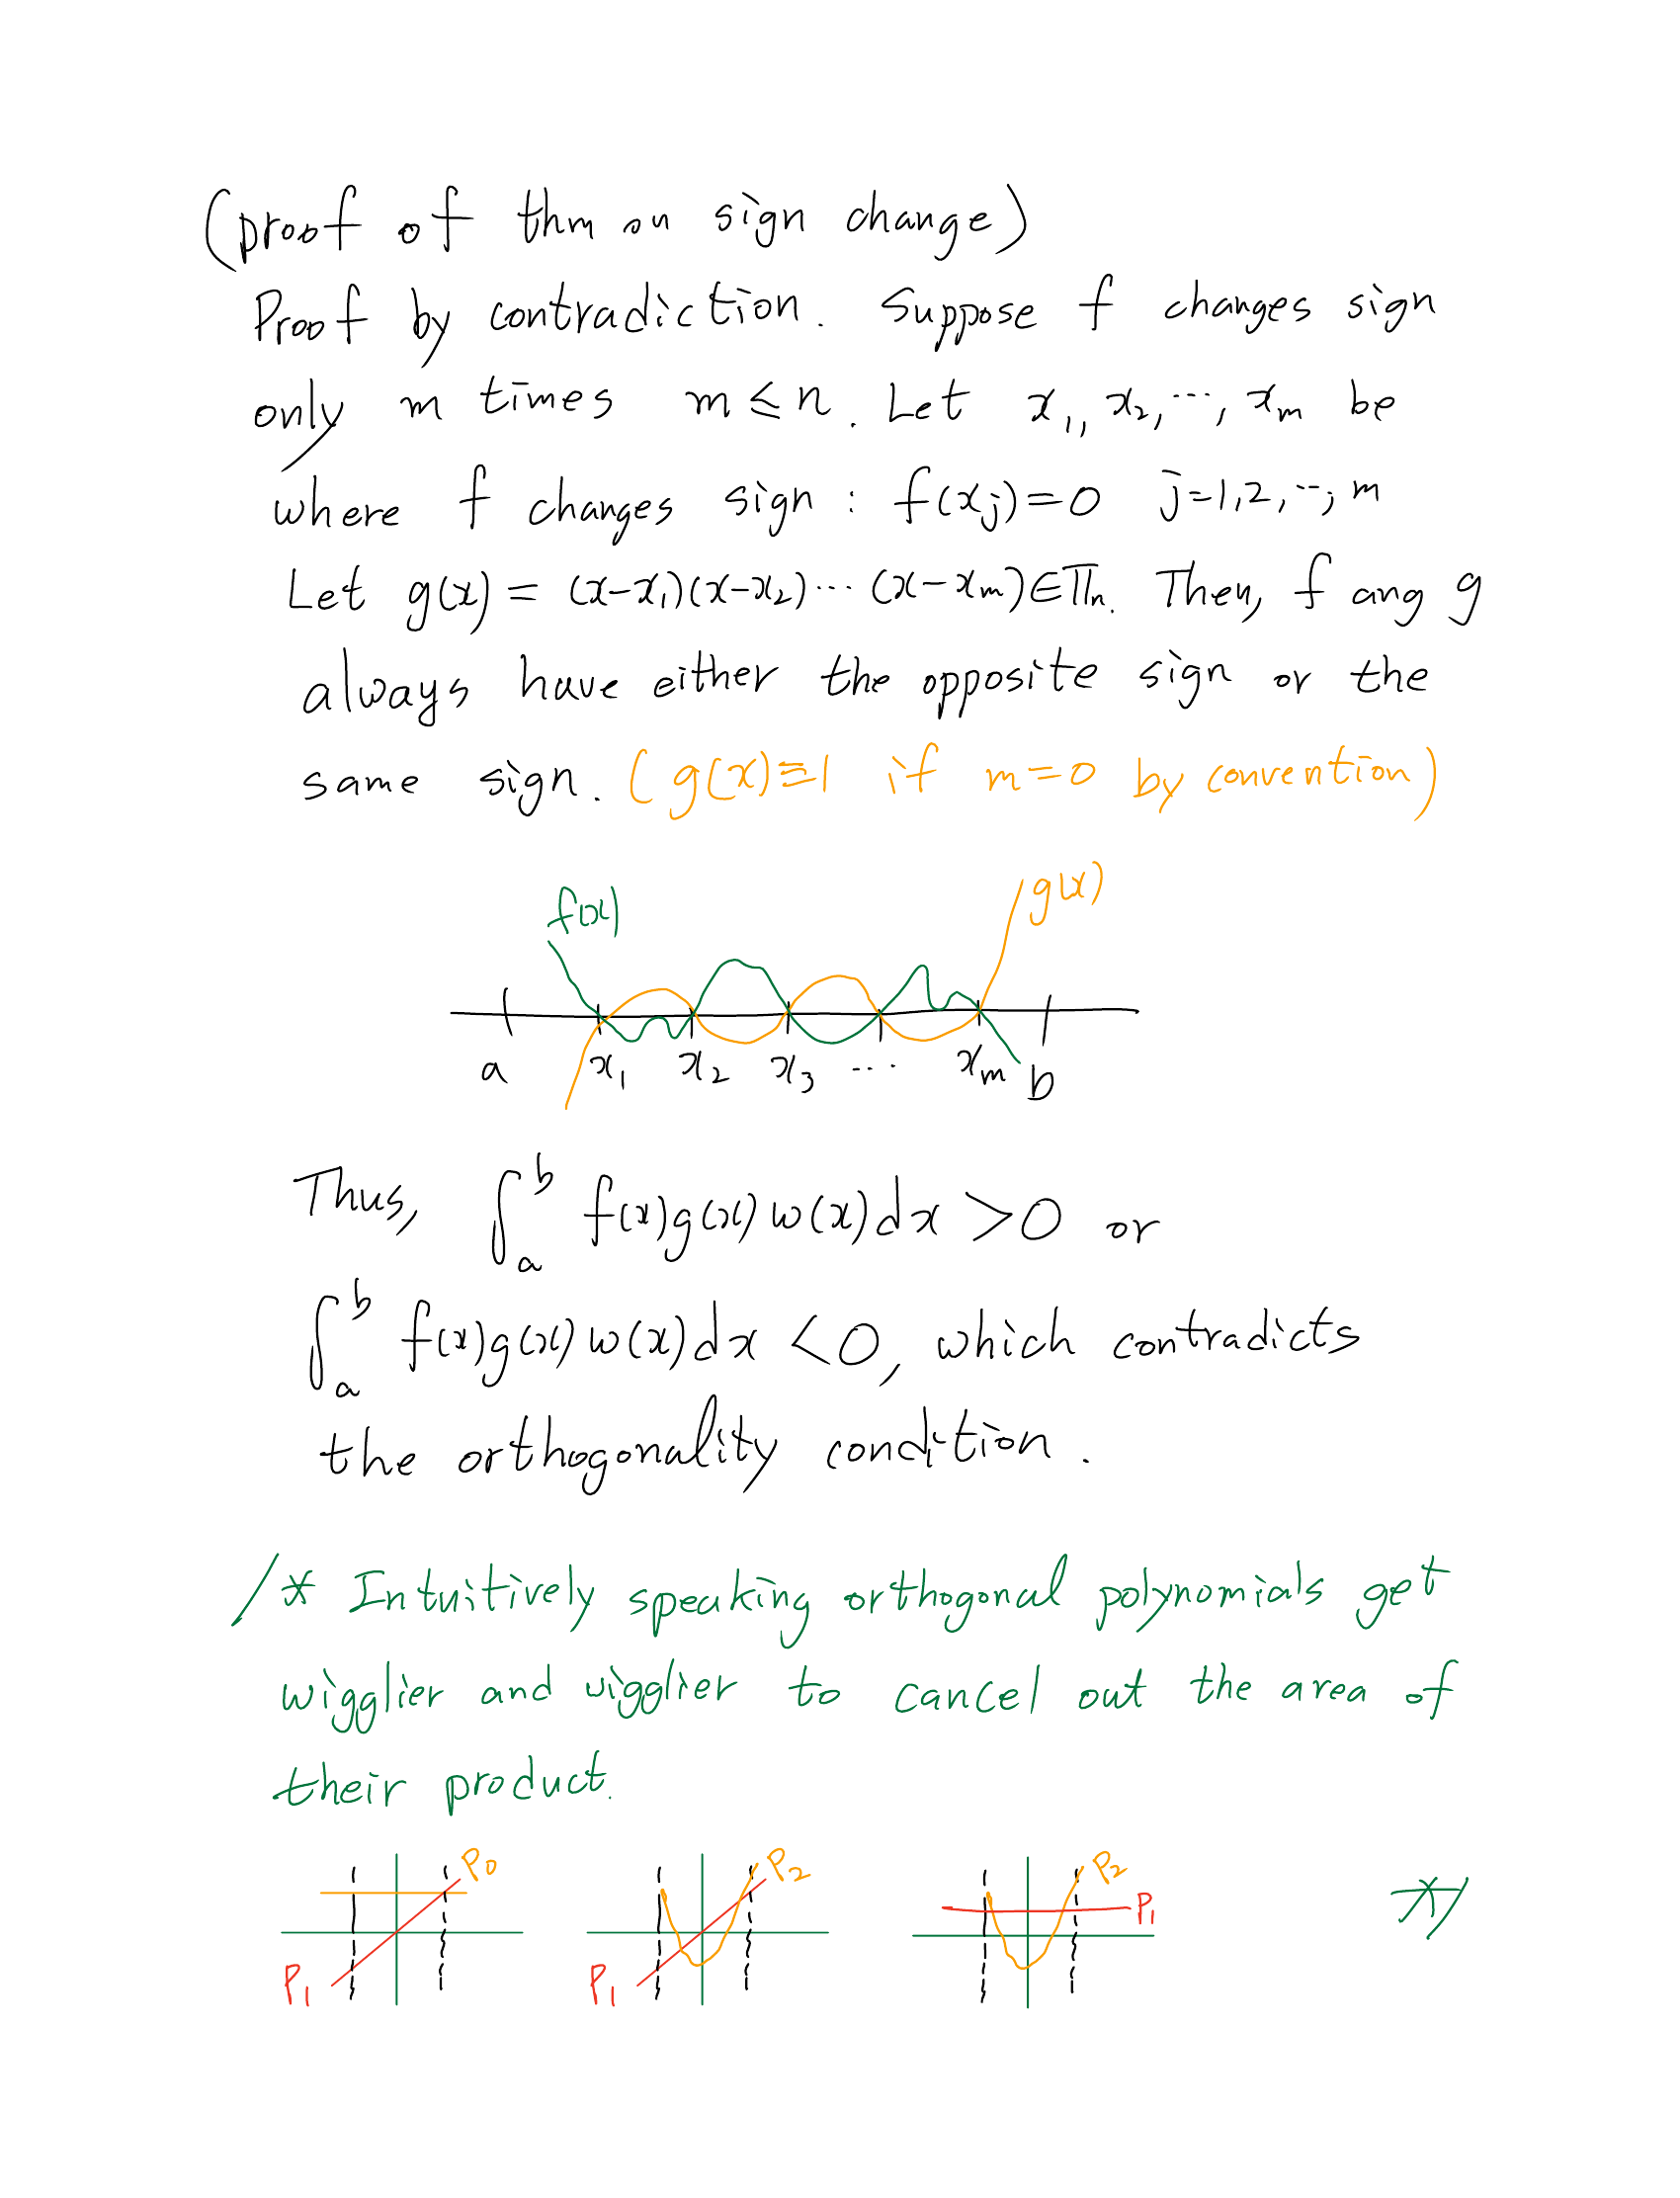 (proof of thm on sign change)
Proof by contradiction. Suppose f changes sign
only m times m ≤ n. Let x₁, x₂, ⋯, xₘ be
where f changes sign : f(xⱼ)=0 j=1,2,⋯, m
Let g(x) = (x-x₁)(x-x₂)⋯(x-xₘ)∈Πₙ. Then, f ang g
always have either the opposite sign or the
same sign. (g(x)≡1 if m=0 by convention)
f(x) g(x)
a x₁ x₂ x₃ ⋯ xₘ b
Thus, ∫ₐᵇ f(x)g(x)w(x)dx >0 or
∫ₐᵇ f(x)g(x)w(x)dx <0, which contradicts
the orthogonality condition.
/* Intuitively speaking orthogonal polynomials get
wigglier and wigglier to cancel out the area of
their product.
P₀ P₂ P₂
P₁ */
P₁ P₁